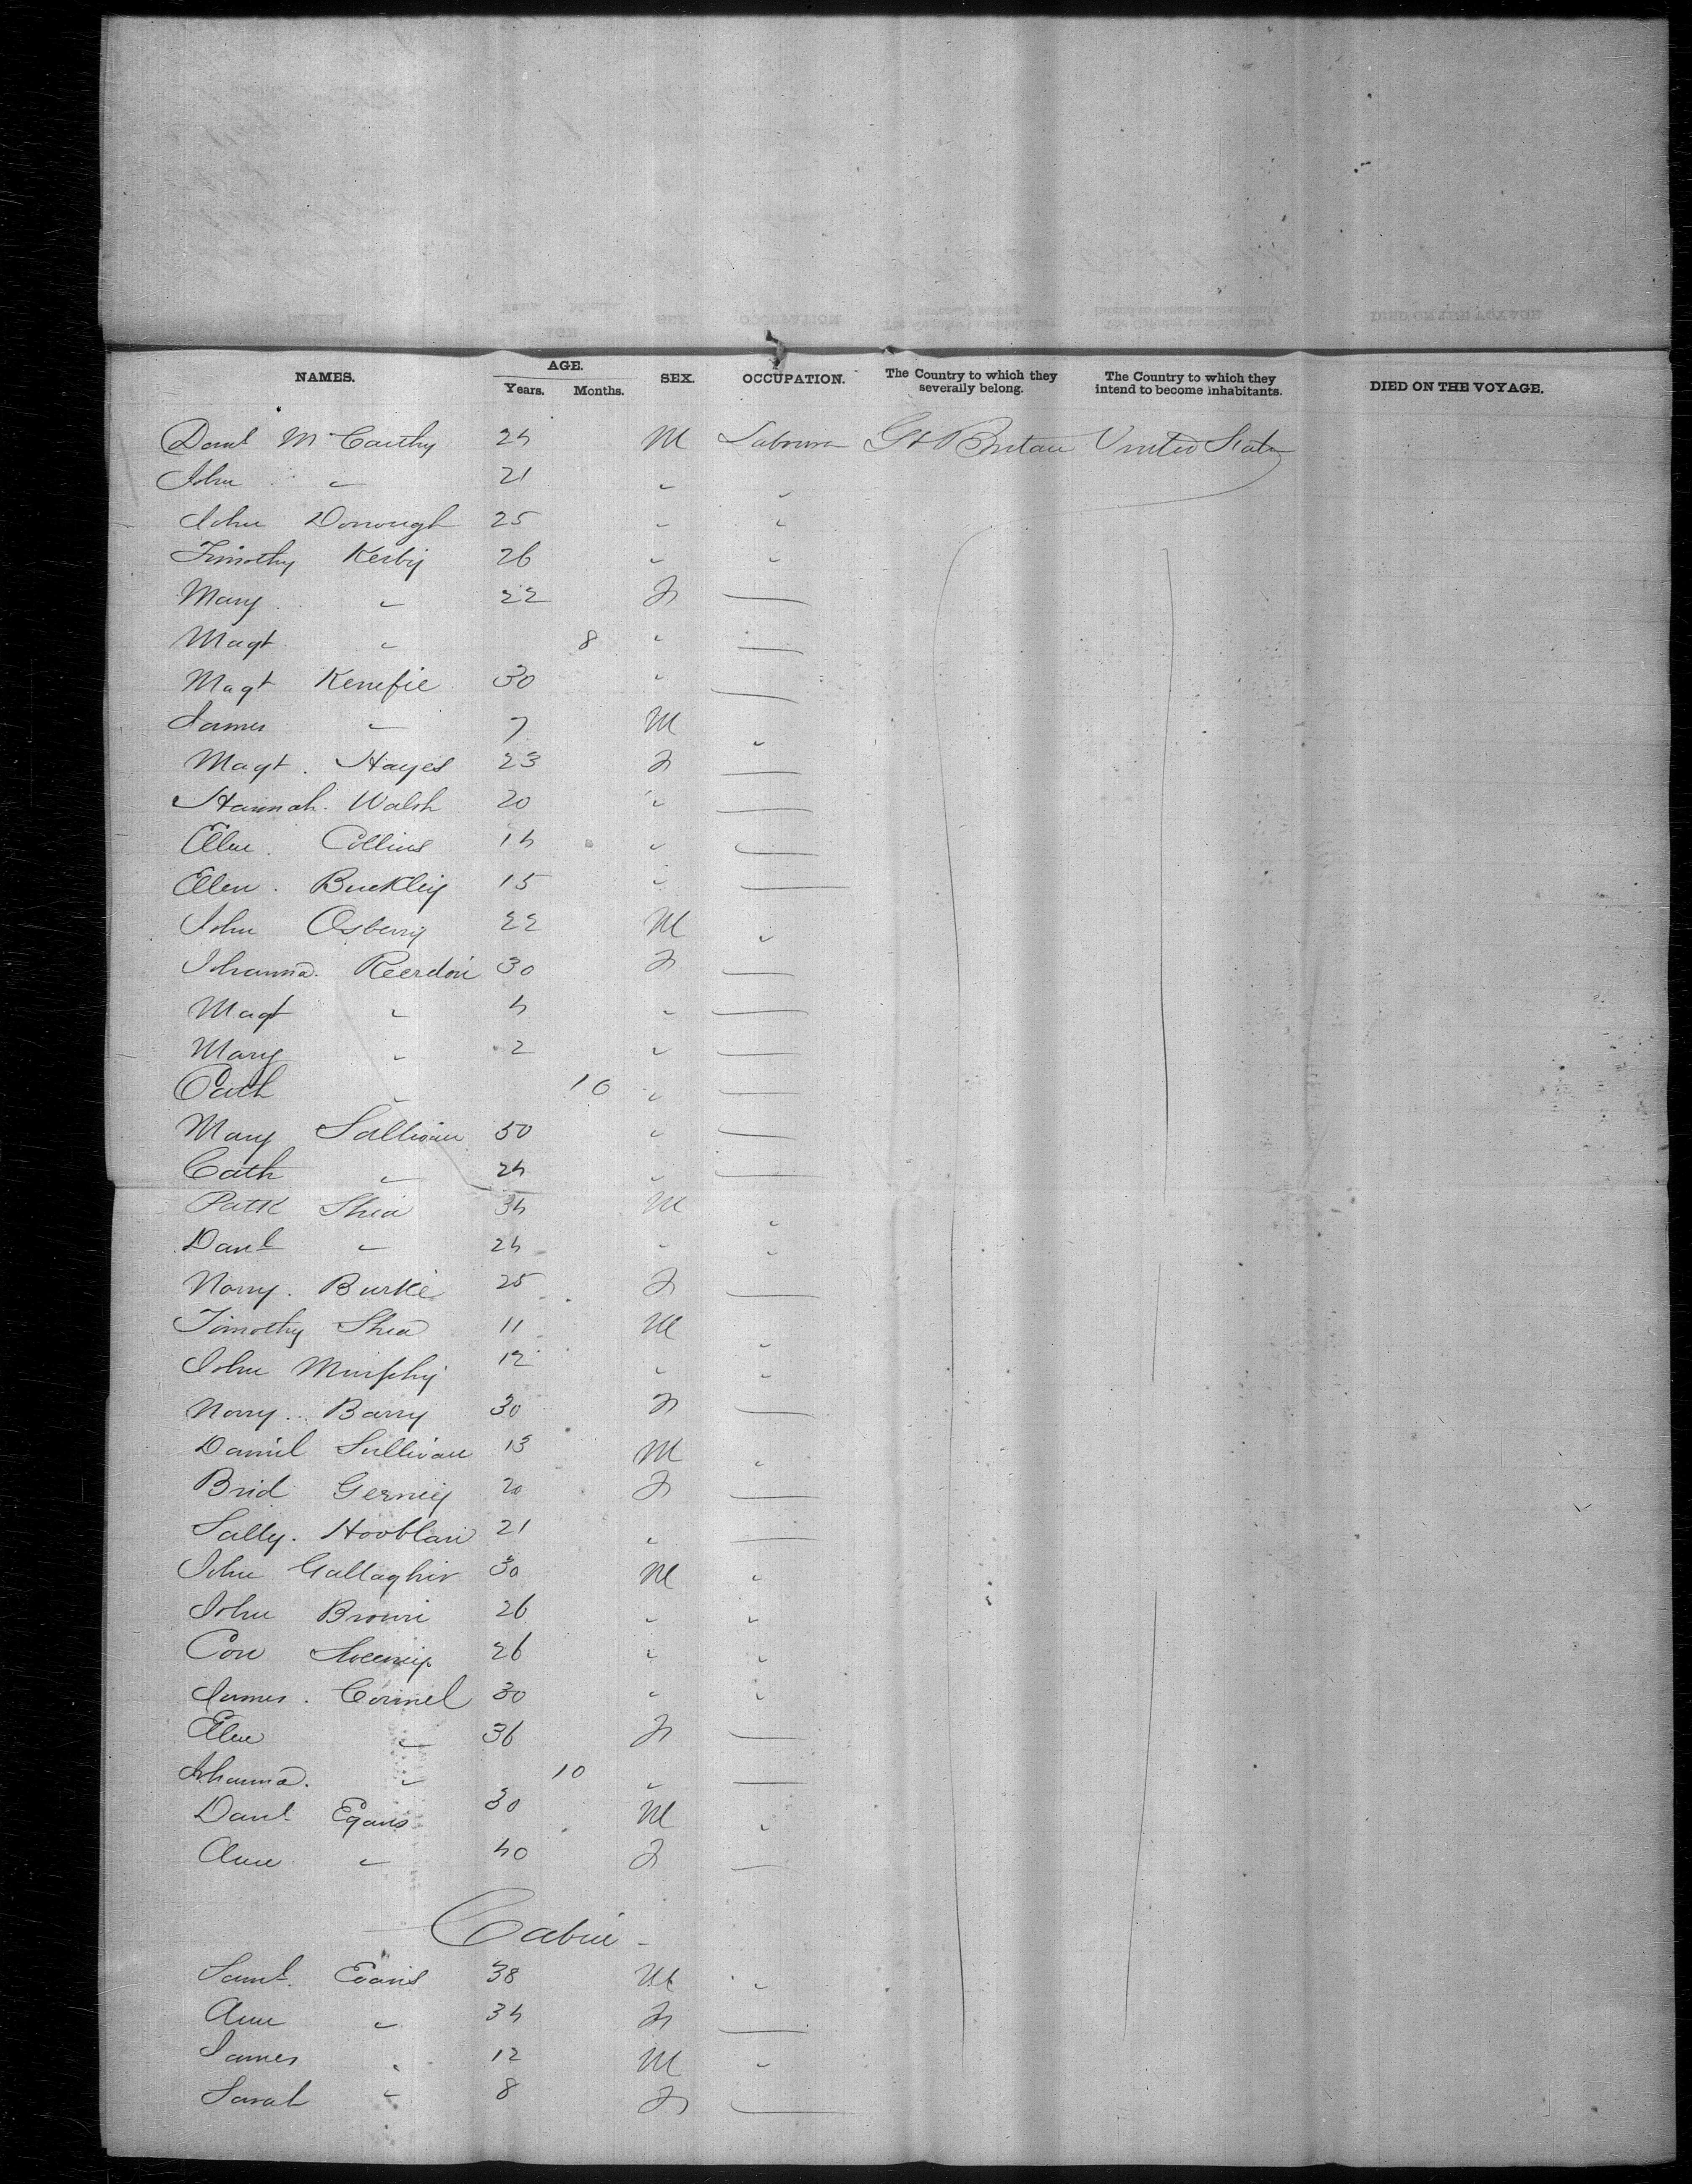 NAMES. AGE. Years. Months. SEX. OCCUPATION. The Country to which they severally belong. The Country to which they intend to become inhabitants. DIED ON THE VOYAGE.
Danl McCarthy 24 M Labourer Gt Britain United States
John " 21 " "
John Donough 25 " "
Timothy Kerby 26 " "
Mary " 22 F —
Magt " 8 " —
Magt Kenefic 30 " —
James " 7 M "
Magt. Hayes 23 F —
Hannah. Walsh 20 " —
Ellen. Collins 14 " —
Ellen. Buckley 15 " —
John Osberry 22 M "
Johanna. Reerdon 30 F —
Magt " 4 " —
Mary " 2 " —
Cath " 10 " —
Mary Sullivan 50 " —
Cath " 24 " —
Patk Shea 34 M "
Danl " 24 " "
Norry. Burke 25 F —
Timothy Shea 11 M "
John Murphy 12 " "
Norry. Barry 30 F —
Daniel Sullivan 13 M "
Brid Gerney 20 F —
Sally. Hooblan 21 " —
John Gallagher 30 M "
John Brown 26 " "
Con 26 " "
James. Connel 30 " "
Ellen " 36 F —
Johanna. " 10 " —
Danl Egans 30 M "
Ann " 40 F —
Cabin
Saml. Evans 38 M "
Ann " 34 F —
James " 12 M "
Sarah " 8 F —